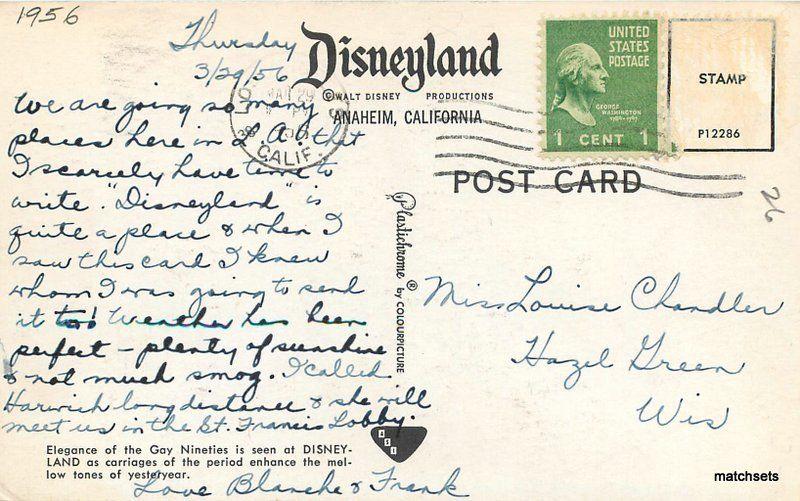 1956
Thursday
3/29/56
We are going so many
places here in L.A. that
I scarcely have time to
write. "Disneyland" is
quite a place & when I
saw this card I knew
whom I was going to send
it to! Weather has been
perfect - plenty of sunshine
& not much smog. I called
Harwich long distance & she will
meet us in the St. Francis Lobby.
Elegance of the Gay Nineties is seen at DISNEY-
LAND as carriages of the period enhance the mel-
low tones of yesteryear.
Love Blanche & Frank
Disneyland
© WALT DISNEY PRODUCTIONS
ANAHEIM, CALIFORNIA
POST CARD
CALIF.
UNITED
STATES
POSTAGE
GEORGE
WASHINGTON
1 CENT 1
STAMP
P12286
26
Plastichrome ® by COLOURPICTURE
Miss Louise Chandler
Hazel Green
Wis
matchsets